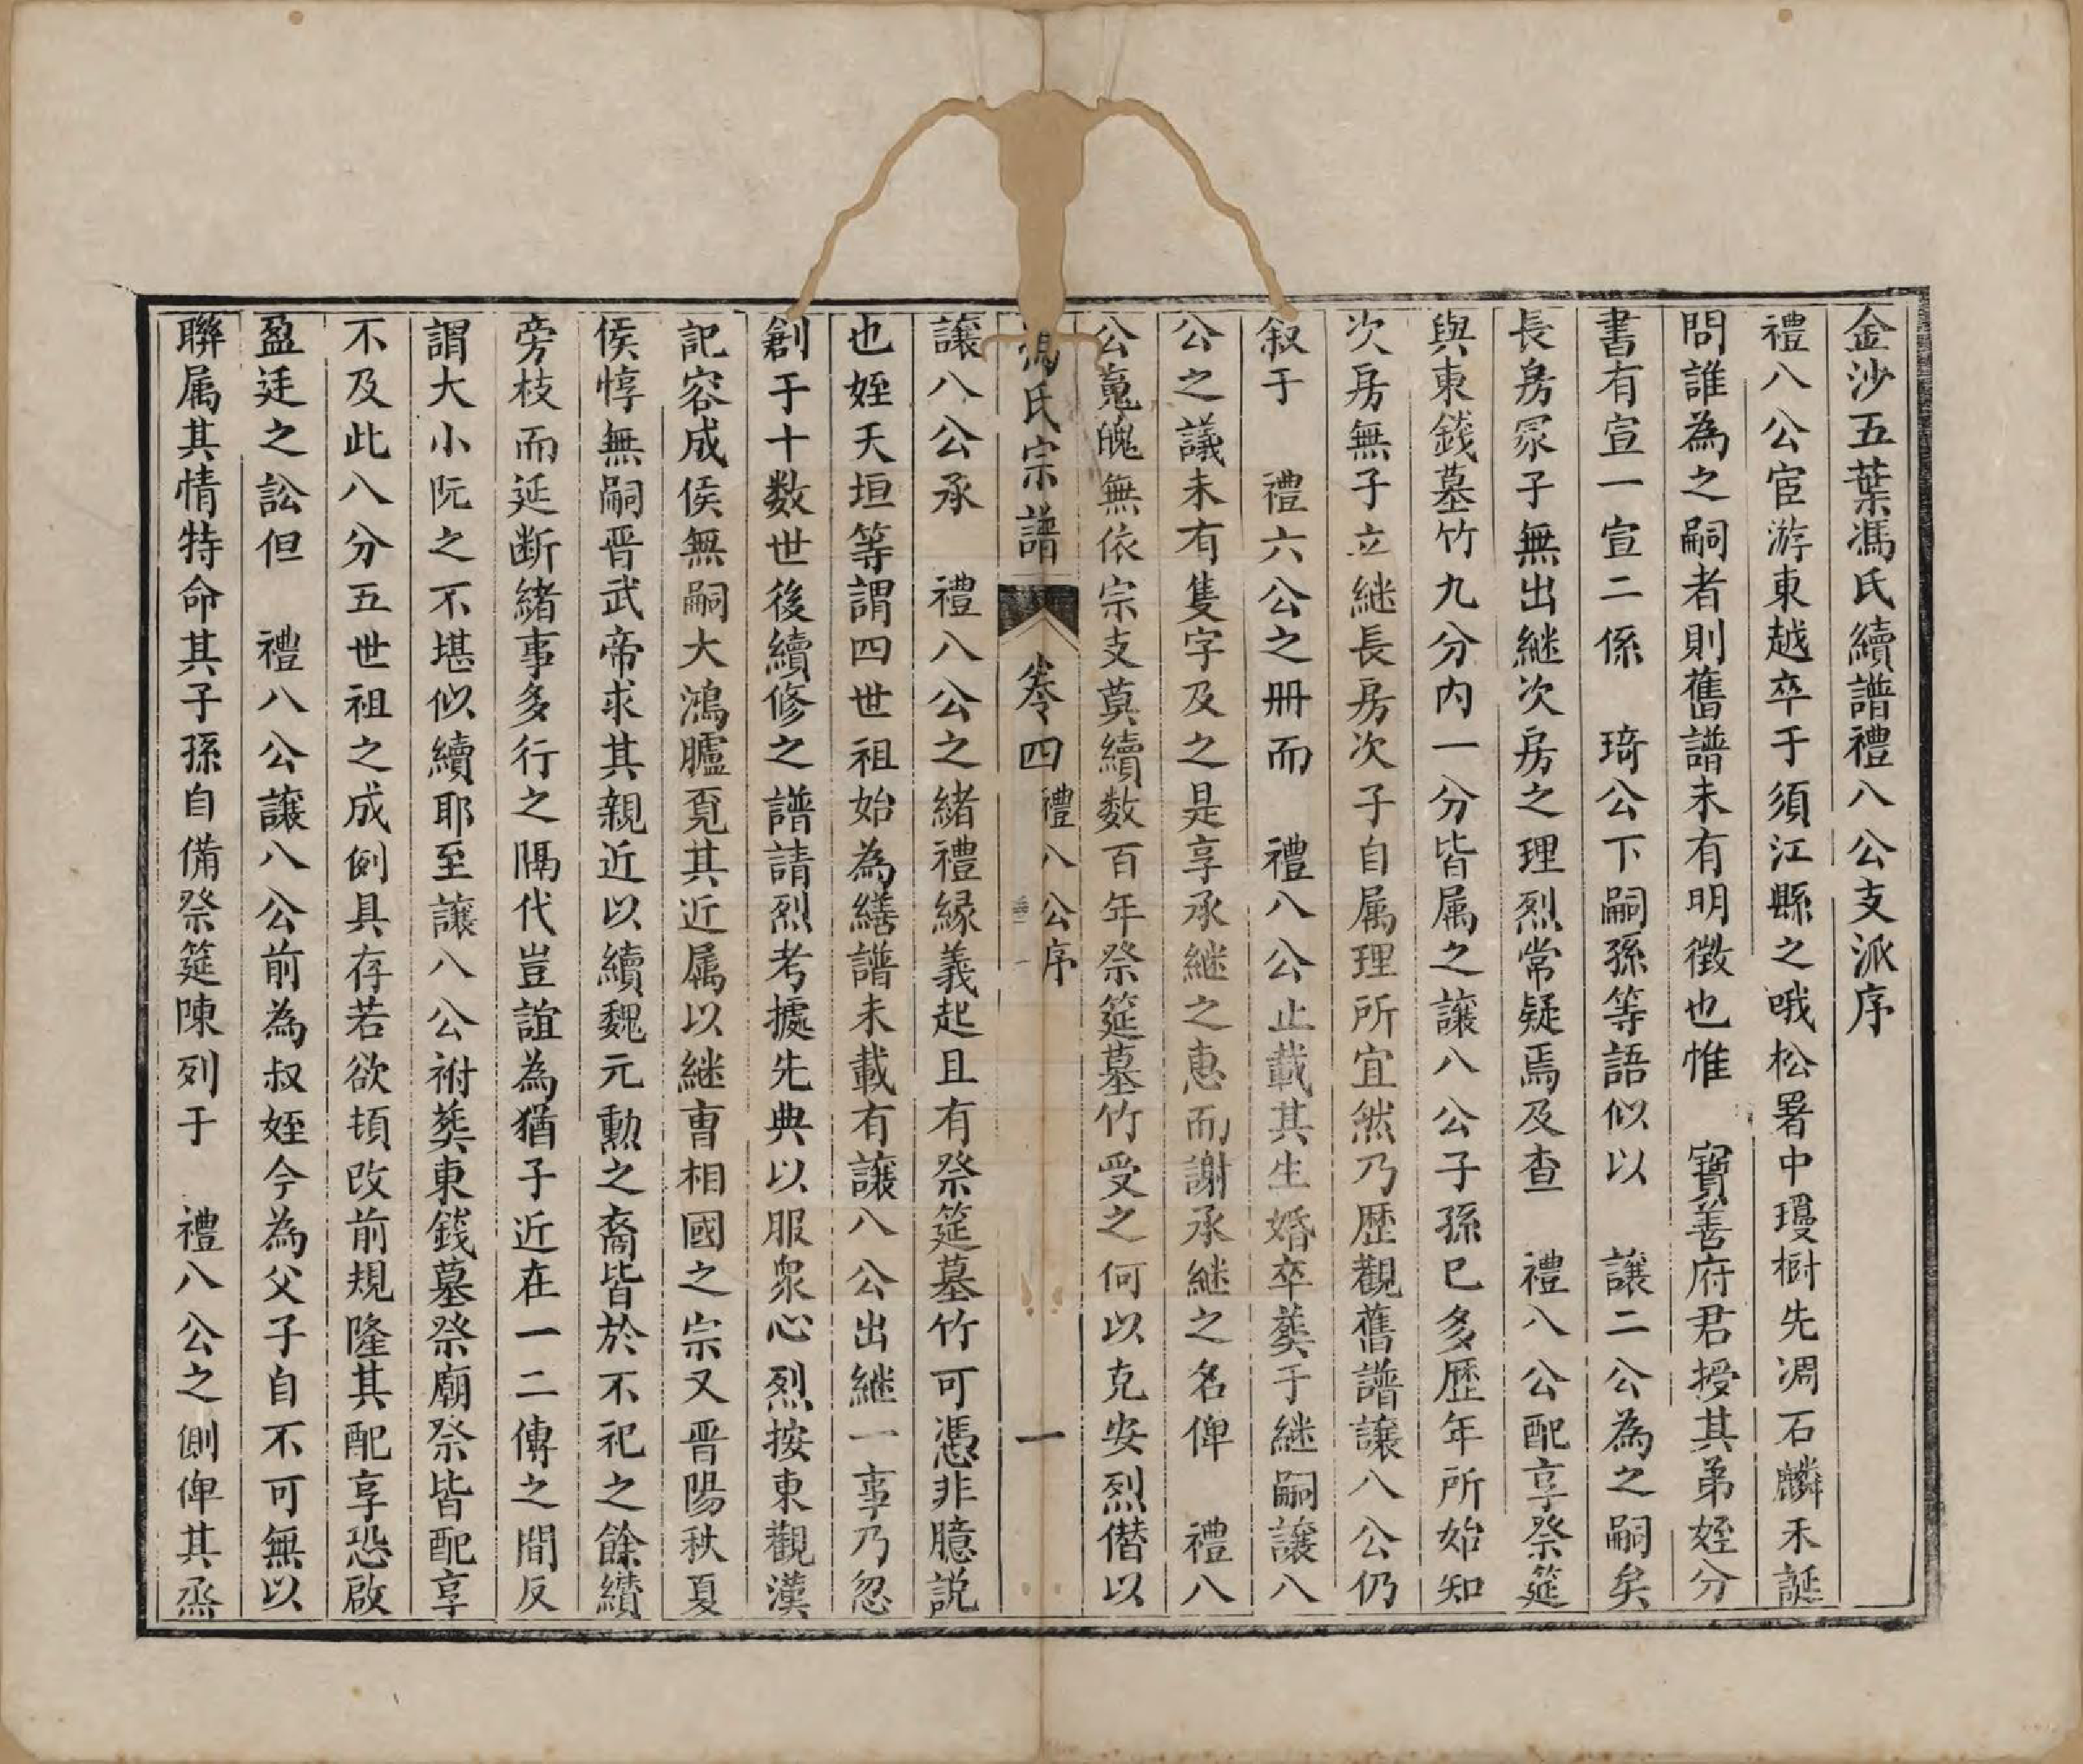 金沙五葉馮氏續譜禮八公支派序
禮八公宦游東越卒于須江縣之哦松署中瓊樹先凋石麟禾誕
問誰為之嗣者則舊譜未有明徵也惟　寶善府君授其弟姪分
書有宣一宣二係　琦公下嗣孫等語似以　讓二公為之嗣矣
長房冢子無出継次房之理烈常疑焉及查　禮八公配享祭筵
與東錢墓竹九分內一分皆属之讓八公子孫已多歷年所始知
次房無子立継長房次子自属理所宜然乃歷觀舊譜讓八公仍
叙于　禮六公之冊而　禮八公止載其生婚卒葬于継嗣讓八
公之議未有隻字及之是享承継之惠而謝承継之名俾　禮八
公䰟魄無依宗支莫續数百年祭筵墓竹受之何以克安烈僭以
馮氏宗譜　卷四　禮八公序　一
讓八公承　禮八公之緒禮緣義起且有祭筵墓竹可憑非臆説
也姪天垣等謂四世祖始為繕譜未載有讓八公出継一事乃忽
創于十数世後續修之譜請烈考據先典以服衆心烈按東觀漢
記容成侯無嗣大鴻臚覔其近属以継曺相國之宗又晋陽秋夏
侯惇無嗣晋武帝求其親近以續魏元勲之裔皆於不祀之餘纘
旁枝而延断緒事多行之隔代豈誼為猶子近在一二傳之間反
謂大小阮之不堪似續耶至讓八公祔葬東錢墓祭廟祭皆配享
不及此八分五世祖之成例具存若欲頓改前規隆其配享恐啟
盈廷之訟但　禮八公讓八公前為叔姪今為父子自不可無以
聯属其情特命其子孫自備祭筵陳列于　禮八公之側俾其烝